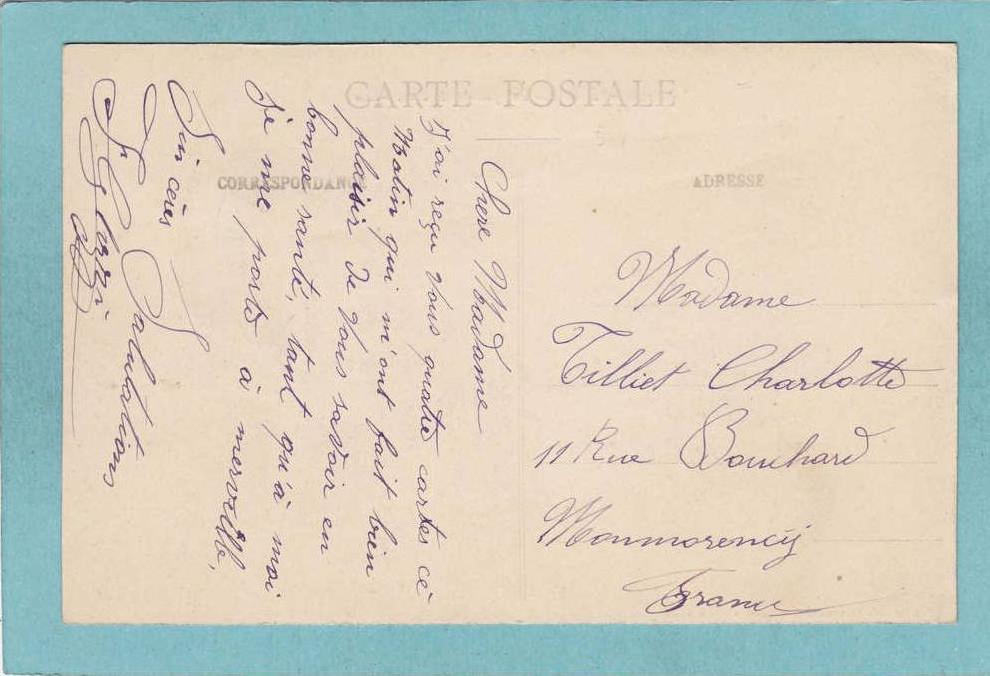 CARTE POSTALE
CORRESPONDANCE
Chere Madame
J'ai reçu vous quatre cartes ce
matin qui m'ont fait bien
plaisir de vous savoir en
bonne santé, tant qu'à moi
je me porte à merveille,
Sinceres
Salutations
ADRESSE
Madame
Tilliet Charlotte
11 Rue Bouchard
Monmorency
France